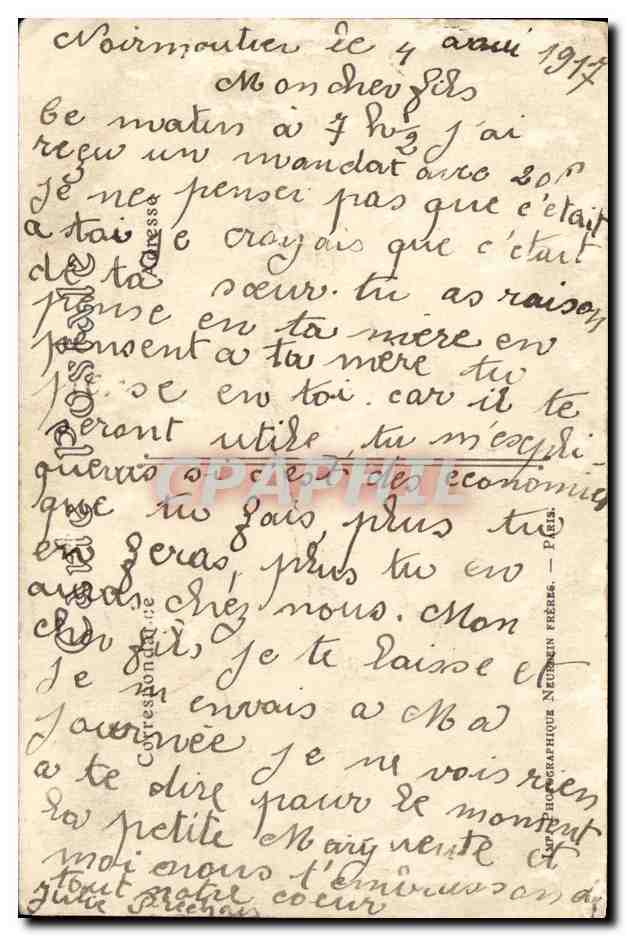 Noirmoutier le 4 avril 1917
Mon cher fils
Ce matin à 7 h ½ j'ai
reçu un mandat avec 20f
je ne penser pas que c'était
a toi je croyais que c'était
de ta soeur. tu as raison
pense en ta mère en
pensent a ta mère tu
pense en toi. car il te
seront utile, tu m'expli
querras si c'est des économies
que tu fais, plus tu
en feras, plus tu en
auras chez nous. Mon
cher fils, je te laisse et
je m envais a Ma
journée je ne vois rien
a te dire pour le moment
La petite Margueritte et
moi nous t'embrassons de
tout notre coeur
Julie
Carte Postale
Adresse
Correspondance
Imp. Photographique Neurdein frères. — Paris.
CPAPHIL